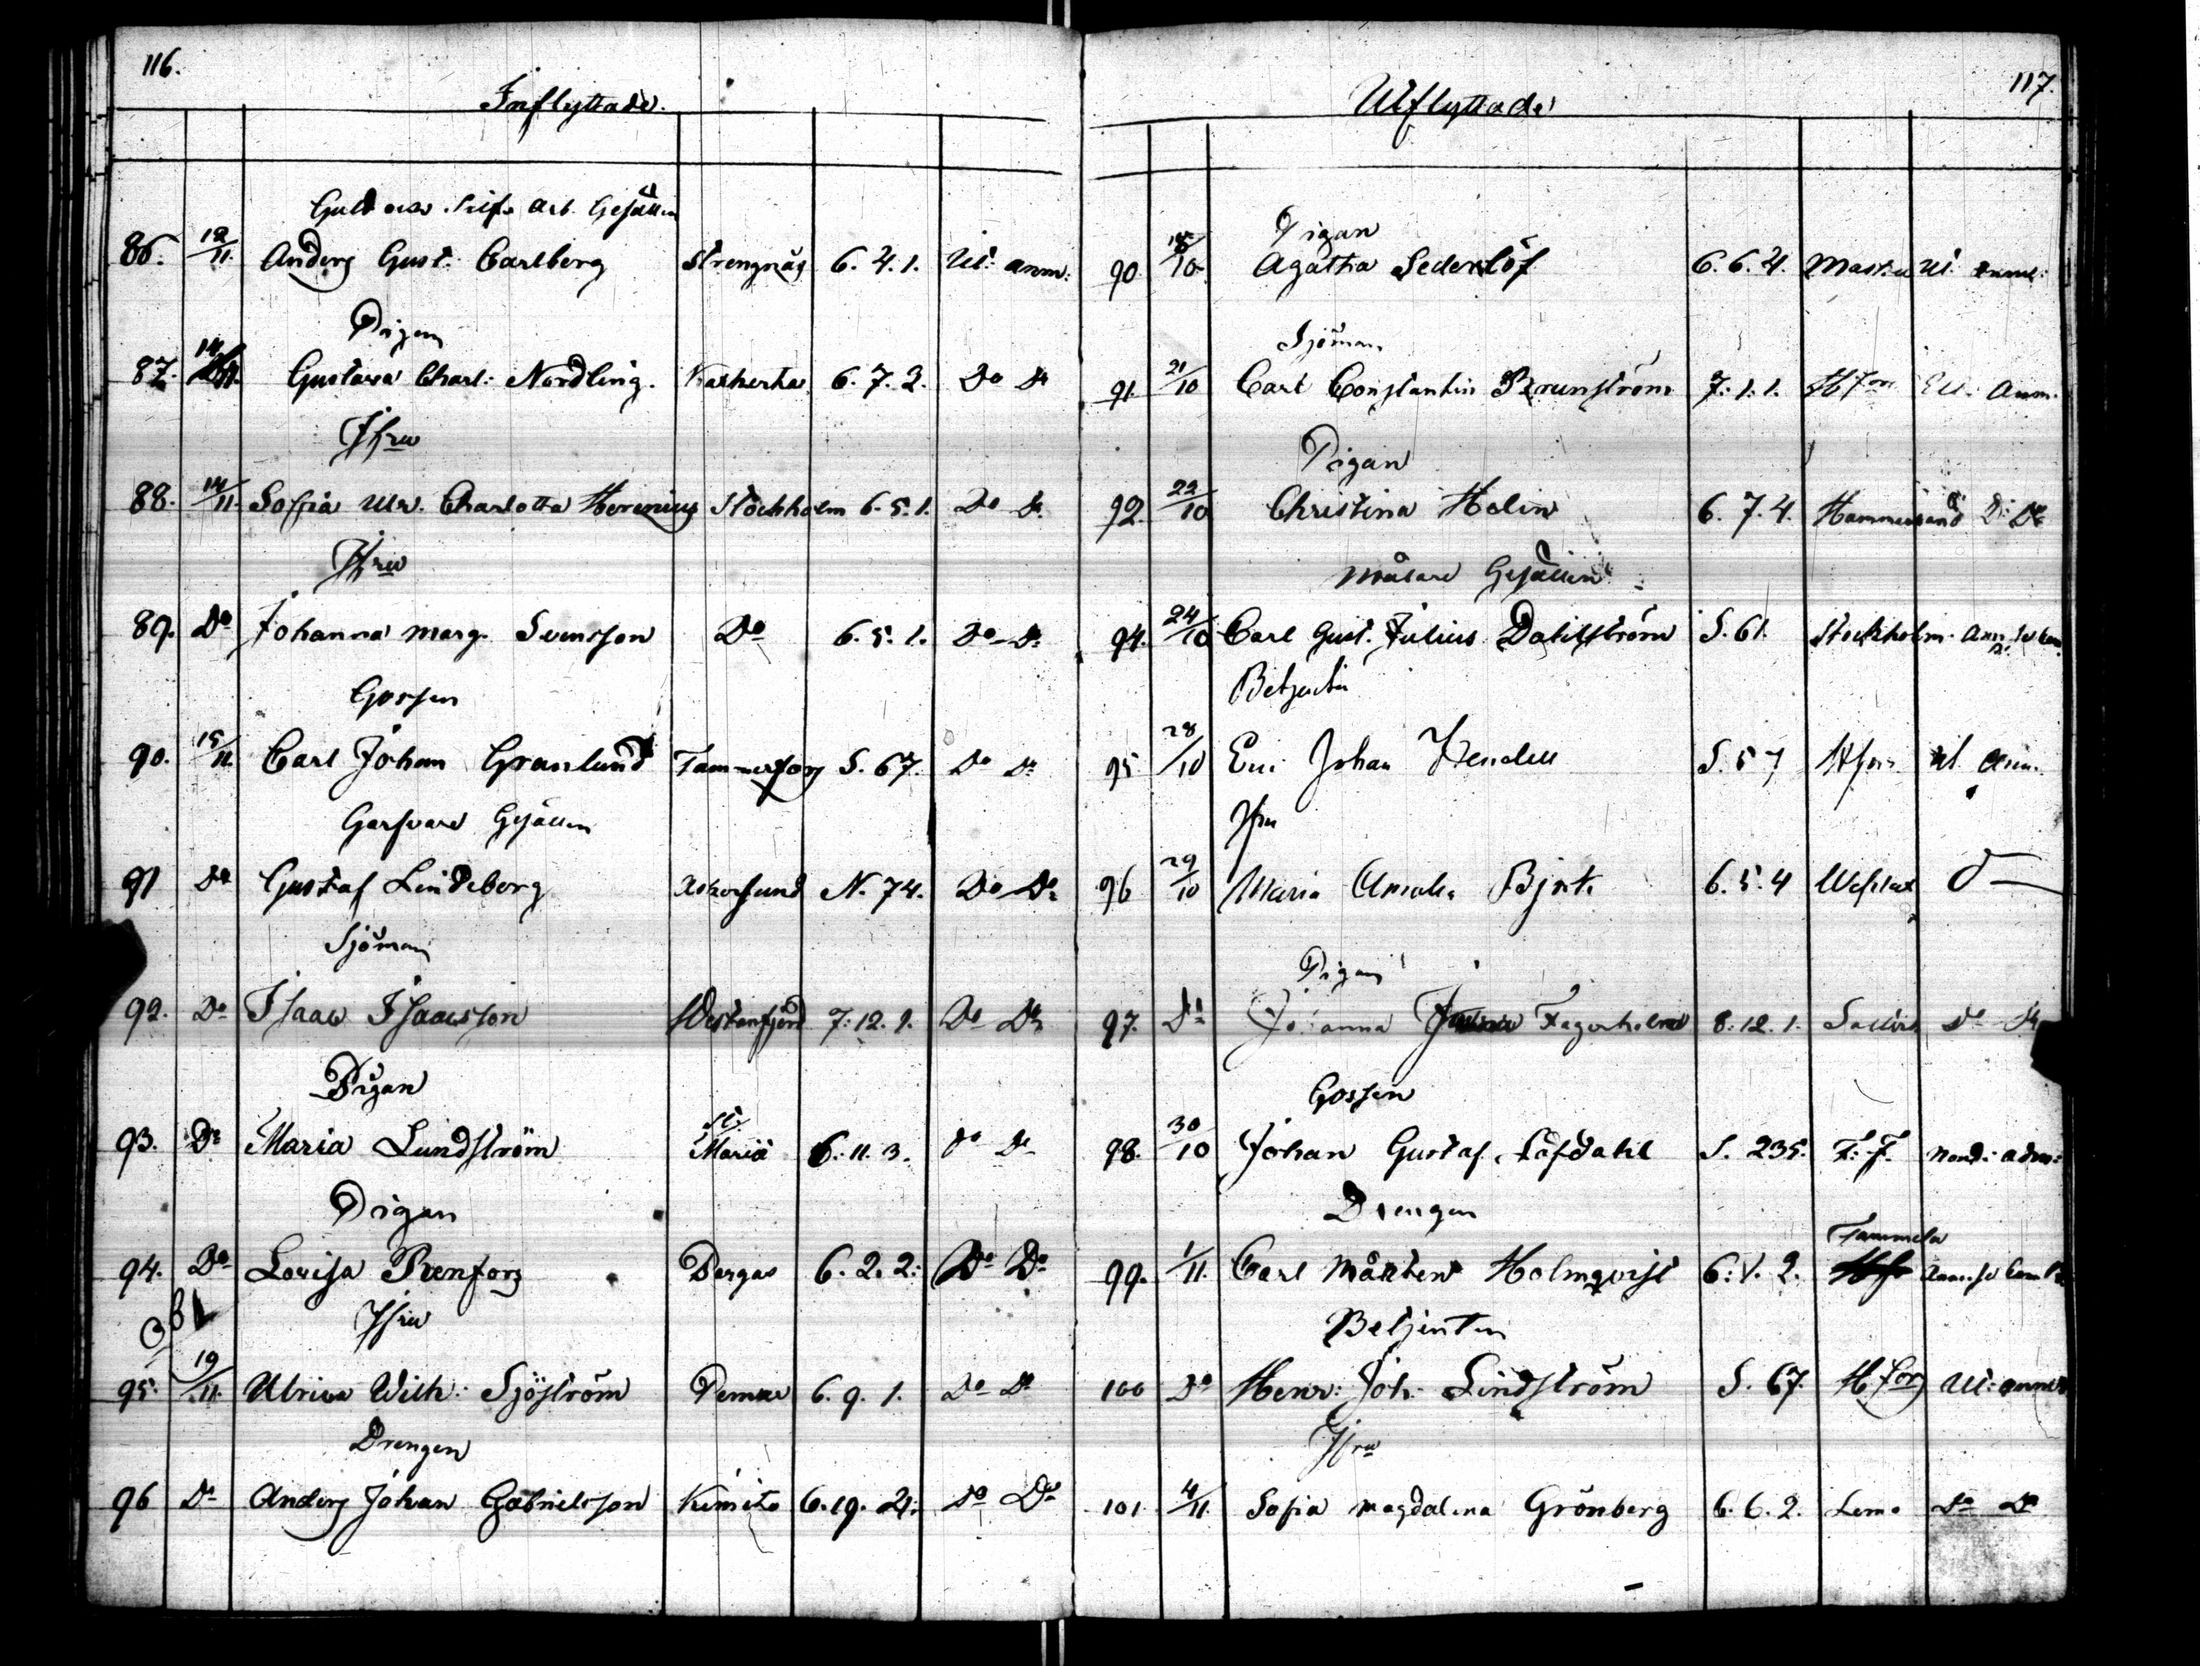 116.
Inflyttade.
Guld och Silf. Arb. Gesällen
86. 12/11 Anders Gust: Carlberg Strengnäs 6. 4. 1. Ut: anm:
Pigan
87. 14/11. Gustava Charl: Nordling. 6. 7. 2. Do Do
Jfru
88. 14/11. Sofia Ulr. Charlotta Herenius Stockholm 6. 5. 1. Do Do
Jfru
89. Do Johanna Marg. Svensson Do 6. 5. 1. Do Do
Gossen
90. 15/11 Carl Johan Granlund Tammerfors S. 67. Do Do
Garfvare Gesällen
91 Do Gustaf Lindeberg Askersund N. 74. Do Do
Sjöman
92. Do Isaac Isaacsson Westanfjerd 7. 12. 1. Do Do
Pigan
93. Do Maria Lundström St: Mariæ 6. 11. 3. Do Do
Pigan
94. Do Lovisa Renfors Pargas 6. 2. 2. Do Do
Obs
Jfru
95. 19/11. Ulrica Wilh: Sjöström Pemar 6. 9. 1. Do Do
Drengen
96 Do Anders Johan Gabrielsson Kimito 6. 19. 21. Do Do
117.
Utflyttade
Pigan
90. 18/10. Agatha Sederlöf 6. 6. 4. Masku Ut: anm:
Sjöman
91. 21/10 Carl Constantin Brunström 7. 1. 1. Hfors Ut: Anm.
Pigan
92. 22/10 Christina Holin 6. 7. 4. Do Do
Målare Gesällen
94. 24/10 Carl Gust. Julius Dahlström S. 61. Stockholm
Betjenten
95 28/10 Eric Johan S. 57 Hfors Ut Anm.
Jfru
96 29/10 Maria Amalia 6. 5. 4
Pigan
97. Do Johanna Fagerholm 8. 12. 1. Do Do
Gossen
98. 30/10 Johan Gustaf Löfdahl S. 235. F. F.
Drengen
99. 1/11. Carl Mårten Holmqvist 6. 1. 2. Tammela
Betjenten
100 Do Henr: Joh: Lindström S. 67. Hfors Ut: anm:
Jfru
101. 4/11. Sofia Magdalena Grönberg 6. 6. 2. Lemo Do Do